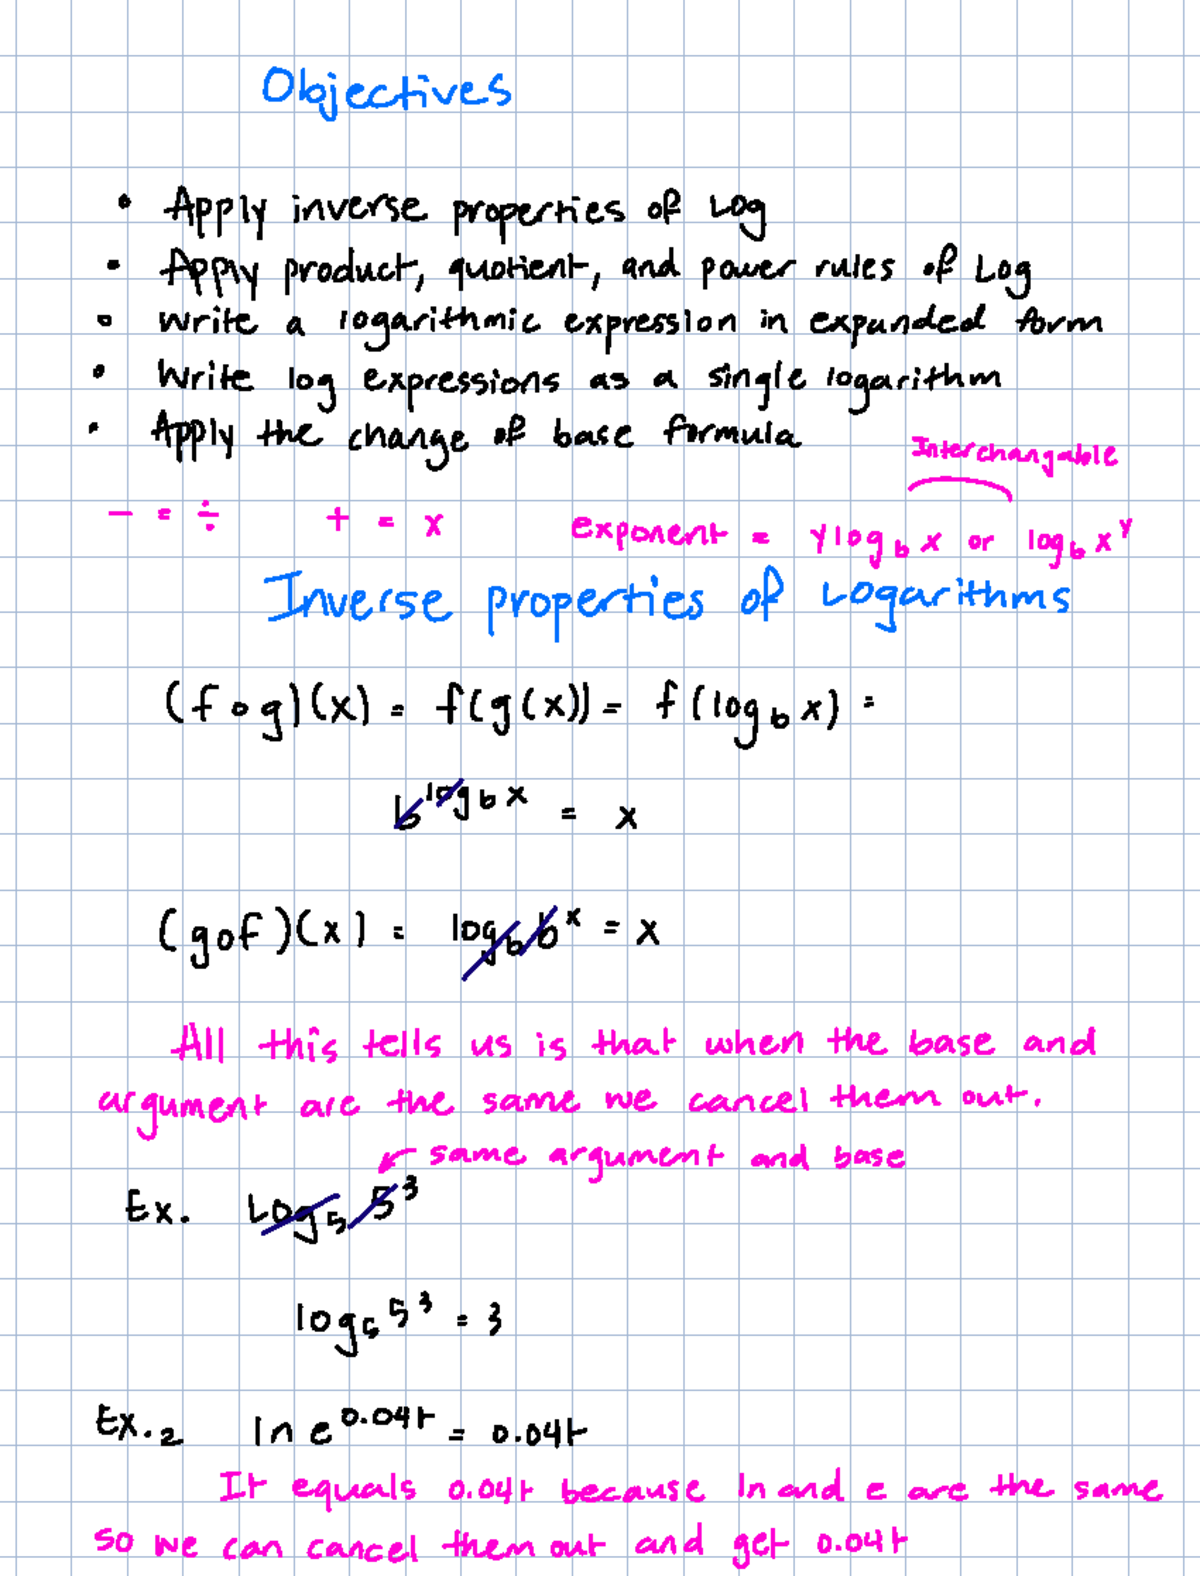 Objectives
• Apply inverse properties of Log
• Apply product, quotient, and power rules of Log
• Write a logarithmic expression in expanded form
• Write log expressions as a single logarithm
• Apply the change of base formula
Interchangable
− = ÷ + = x exponent = y log_b x or log_b x^y
Inverse properties of Logarithms
(f∘g)(x) = f(g(x)) = f(log_b x) =
b^(log_b x) = x
(g∘f)(x) = log_b b^x = x
All this tells us is that when the base and
argument are the same we cancel them out.
same argument and base
Ex. Log_5 5^3
log_5 5^3 = 3
Ex.2 ln e^0.04t = 0.04t
It equals 0.04t because ln and e are the same
so we can cancel them out and get 0.04t